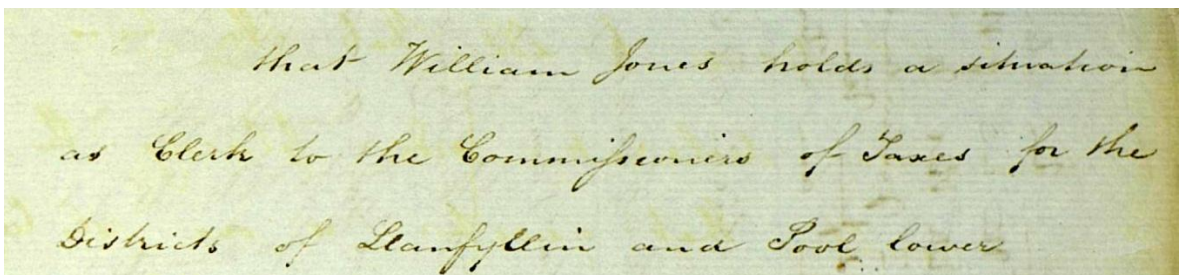 that William Jones holds a situation
as Clerk to the Commissioners of Taxes for the
Districts of Llanfyllin and Pool lower